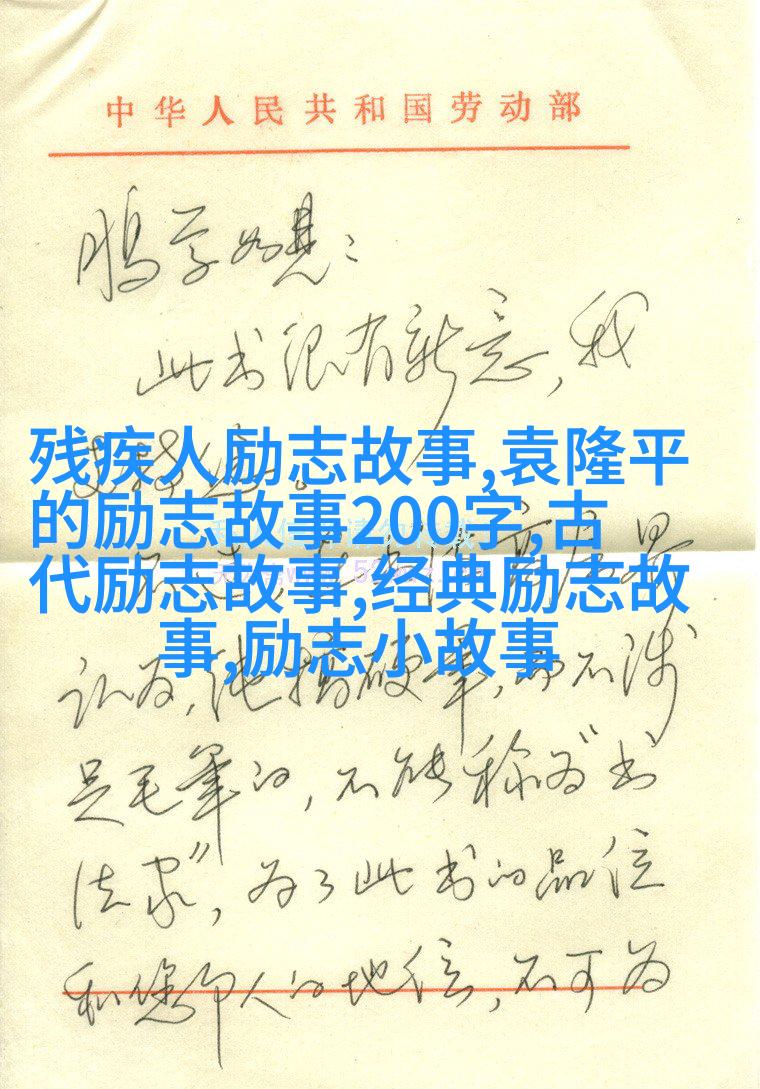 中华人民共和国劳动部
鹏学如晤：
此书很有新意，我
残疾人励志故事,袁隆平
的励志故事200字,古
代励志故事,经典励志故
事,励志小故事
认为，纯搞硬笔，而不涉
足毛笔的，不能称为“书
法家”，为了此书的品位
和您本人的地位，不可为